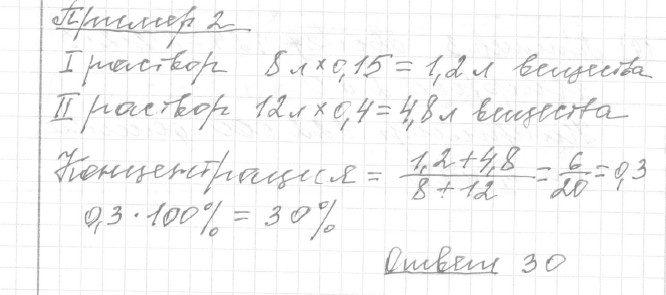 Пример 2
I раствор 8 л × 0,15 = 1,2 л вещества
II раствор 12 л × 0,4 = 4,8 л вещества
Концентрация = \frac{1,2 + 4,8}{8 + 12} = \frac{6}{20} = 0,3
0,3 · 100% = 30%
Ответ 30